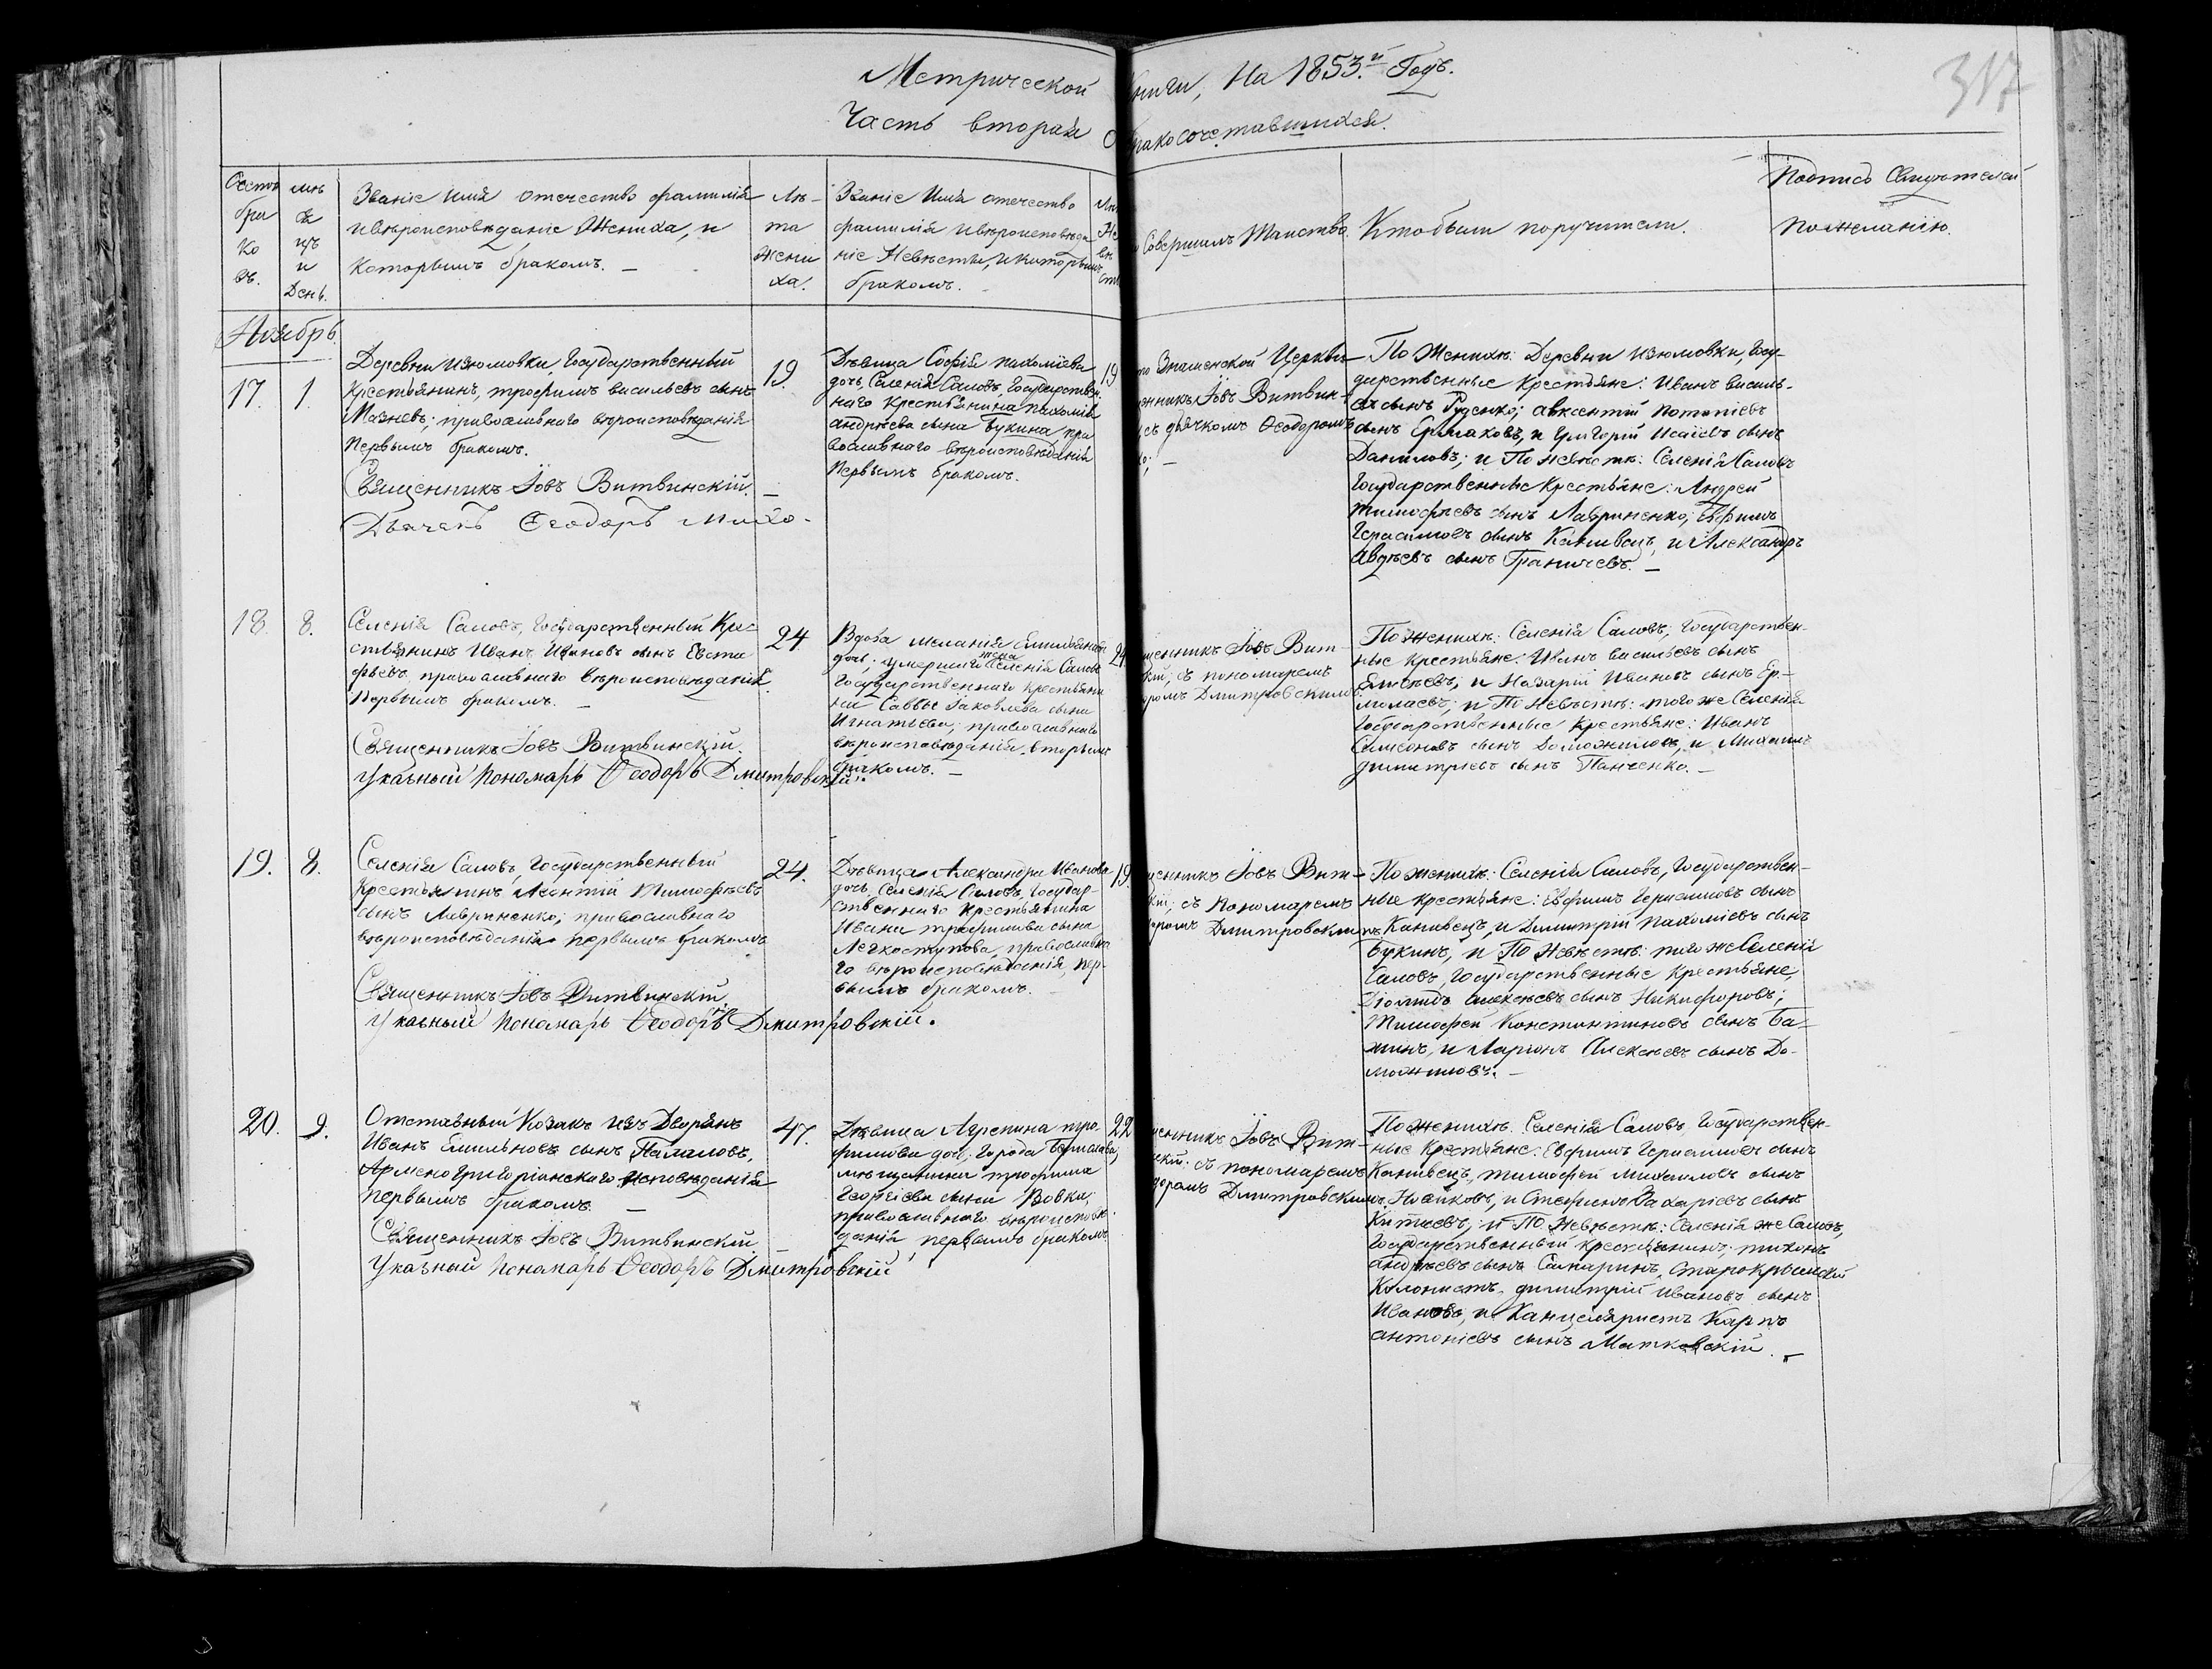 Метрической Книги, На 1853.й Годъ.
Часть вторая О Бракосочетавшихся.
317
Счетъ
бра
ко
въ.
мѣ
ся
цъ
и
День.
Званіе имя отечество фамилія
и вѣроисповѣданіе Жениха, и
которымъ бракомъ. –
Лѣ-
та
жени
ха.
Званіе Имя отечество
фамилія и вѣроисповѣда
ніе Невѣсты, и которымъ
бракомъ.
Совершилъ Таинство.
Кто были поручители.
Подпись Свидѣтелей
по желанію.
Ноябрь
17.
1.
Деревни Изюмовки, Государственный
Крестьянинъ, трофимъ васильевъ сынъ
Мазневъ; православнаго вѣроисповѣданія
первымъ бракомъ.
Священникъ Іовъ Витвинскій. –
Дьячекъ Ѳеодоръ
19.
Дѣвица Софія пахоміева
дочь, Селенія Саловъ, Государствен-
наго Крестьянина пахомія
андрѣева сына Букина пра
вославнаго вѣроисповѣданія
первымъ бракомъ.
19
Знаменской Церкви
Іовъ Витвин-
съ дьячкомъ Ѳеодоромъ
По Женихѣ: Деревни изюмовки, Госу-
дарственные крестьяне: Иванъ василь-
евъ сынъ Руденко; авксентій потапіевъ
сынъ Ермаковъ, и Григорій Исаіевъ сынъ
Даниловъ; и По невѣстѣ: Селенія Саловъ
Государственные Крестьяне: Андрей
тимофѣевъ сынъ Лавриненко; Евфимъ
Герасимовъ сынъ Канивецъ, и Александръ
Авдѣевъ сынъ Граничевъ. –
18.
8.
Селенія Саловъ, Государственный Кре-
стьянинъ Иванъ Ивановъ сынъ Евста
фьевъ, православнаго вѣроисповѣданія
первымъ бракомъ. –
Священникъ Іовъ Витвинскій.
Указный Пономарь Ѳеодоръ Дмитровскій.
24
Вдова меланія емильянова
дочь; умершаго жена Селенія Саловъ
Государственнаго крестьяни
на Саввы Іаковлева сына
Игнатьева; православнаго
вѣроисповѣданія вторымъ
бракомъ. –
24.
Іовъ Вит-
съ пономаремъ
Дмитровскимъ
По женихѣ: Селенія Саловъ; Государствен-
ные крестьяне: Иванъ васильевъ сынъ
Елисѣевъ; и Назарій Ивановъ сынъ Ер-
молаевъ; и По Невѣстѣ: того же Селенія
Государственные Крестьяне: Иванъ
Симеоновъ сынъ Доможиловъ, и Михаилъ
димитріевъ сынъ Панченко. –
19.
8.
Селенія Саловъ, Государственный
Крестьянинъ Леонтій Тимофѣевъ
сынъ Лавриненко; православнаго
вѣроисповѣданія первымъ бракомъ
Священникъ Іовъ Витвинскій.
Указный Пономарь Ѳеодоръ Дмитровскій.
24.
Дѣвица Александра Иванова
дочь, Селенія Саловъ, Государ-
ственнаго Крестьянина
Ивана трофимова сына
Легкоступова, православна
го вѣроисповѣданія, пер-
вымъ бракомъ.
19.
Іовъ Вит-
съ Пономаремъ
Дмитровскимъ
По женихѣ: Селенія Саловъ, Государствен-
ные крестьяне: Евфимъ Герасимовъ сынъ
Канивецъ, и Димитрій пахоміевъ сынъ
Букинъ, и По Невѣстѣ: того же Селенія
Саловъ, Государственные крестьяне,
Діомидъ алексѣевъ сынъ Никифоровъ;
Тимофей Константиновъ сынъ Ба-
жинъ, и Ларіонъ Алексѣевъ сынъ До-
можиловъ. –
20.
9.
Отставный Козакъ изъ Дворянъ
Иванъ Емильновъ сынъ Палаловъ,
Армено Григоріанскаго исповѣданія
первымъ бракомъ. –
Священникъ Іовъ Витвинскій
Указный Пономарь Ѳеодоръ Дмитровскій
47.
Дѣвица Агрепина тро-
фимова доч; города Берислава,
мѣщанина трофима
Георгіева сына Вовки;
православнаго вѣроисповѣ-
данія, первымъ бракомъ
22
Іовъ Вит-
съ пономаремъ
Дмитровскимъ
По женихѣ: Селенія Саловъ, Государствен-
ные крестьяне: Евфимъ Герасимовъ сынъ
Канивецъ, тимофей михаиловъ сынъ
Носиковъ, и Стефанъ Захаріевъ сынъ
Китаевъ; и По Невѣстѣ: Селенія же Саловъ,
Государственный крестьянинъ, тихонъ
андрѣевъ сынъ Сапаринъ, старокрымскій
Колонистъ димитрій Ивановъ сынъ
Ивановъ, и Канцеляристъ Карпъ
антоніевъ сынъ Матковскій. –